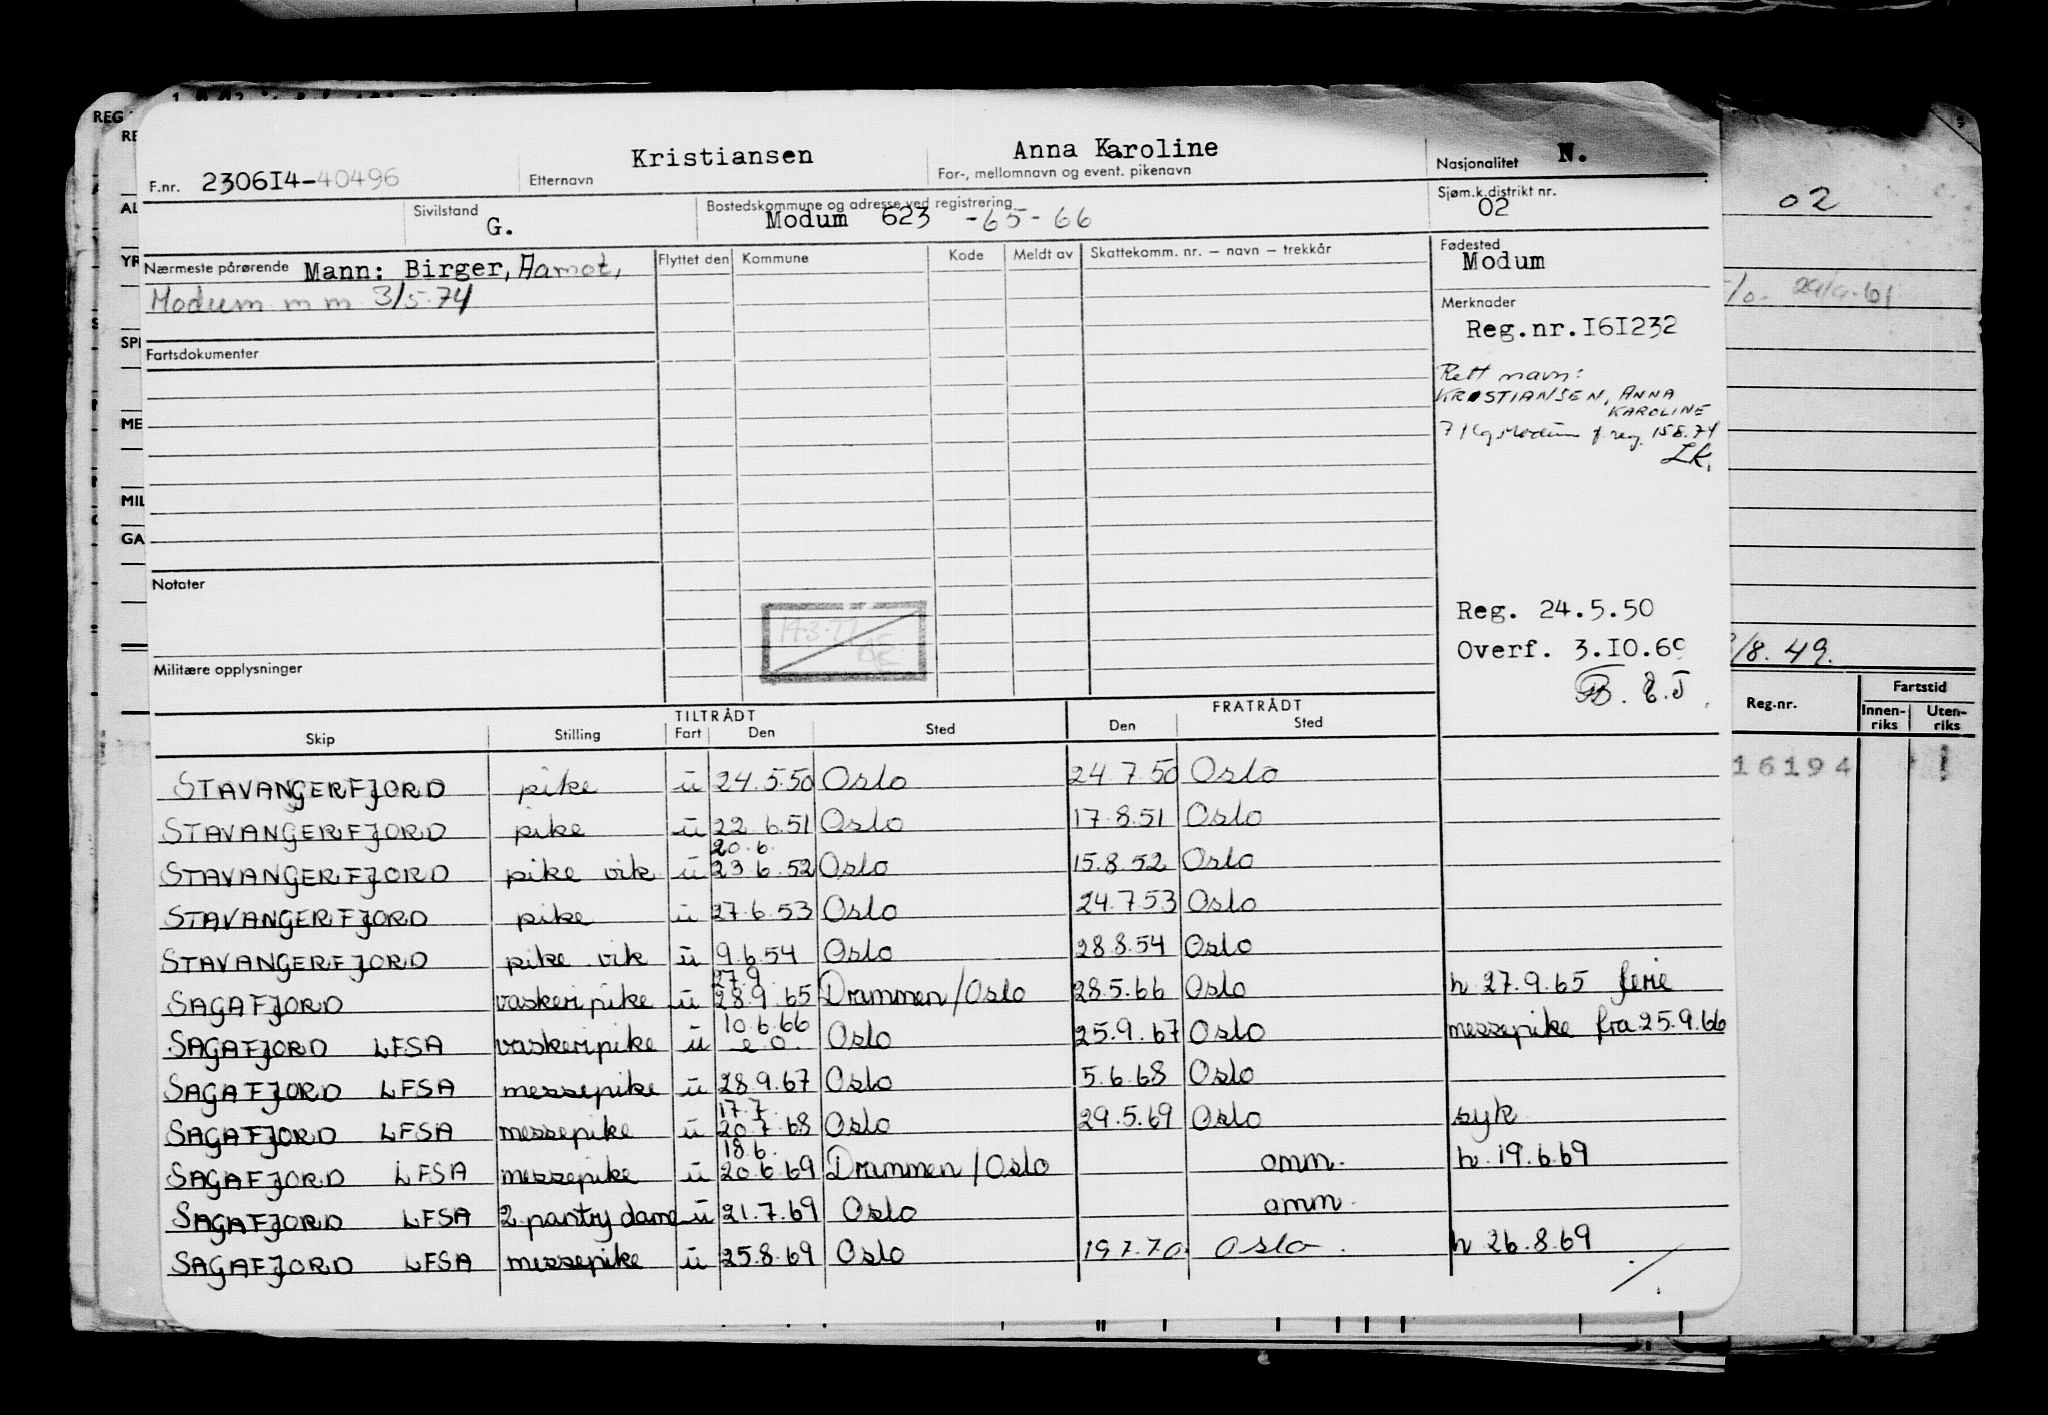 REG
F.nr. 2306I4-40496 Kristiansen Etternavn Anna Karoline For-, mellomnavn og event. pikenavn Nasjonalitet N.
Sivilstand G. Bostedskommune og adresse ved registrering Modum 623 -65-66 Sjøm.k.distrikt nr. 02
Nærmeste pårørende Mann: Birger, Aamot,
Modum m m 3/5.74
Flyttet den Kommune Kode Meldt av Skattekomm. nr. – navn – trekkår
Fødested Modum
Merknader
Reg.nr.I6I232
Rett navn:
KRISTIANSEN, ANNA
KAROLINE
Modum f.reg. 15.8.74
LK.
Fartsdokumenter
Notater
Militære opplysninger
Reg. 24.5.50
Overf. 3.IO.69
TILTRÅDT FRATRÅDT
Skip Stilling Fart Den Sted Den Sted
STAVANGERFJORD pike u 24.5.50 Oslo 24.7.50 Oslo
STAVANGERFJORD pike u 22 6.51 Oslo 17.8.51 Oslo
20.6.
STAVANGERFJORD pike vik u 23 6.52 Oslo 15.8.52 Oslo
STAVANGERFJORD pike u 27.6.53 Oslo 24.7.53 Oslo
STAVANGERFJORD pike vik u 9.6.54 Oslo 28.8.54 Oslo
27.9.
SAGAFJORD vaskeripike u 28.9.65 Drammen/Oslo 28.5.66 Oslo h 27.9.65 ferie
10.6.66
SAGAFJORD LFSA vaskeripike u e.o. Oslo 25.9.67 Oslo messepike fra 25.9.66
SAGAFJORD LFSA messepike u 28.9.67 Oslo 5.6.68 Oslo
17.7.
SAGAFJORD LFSA messepike u 20.7.68 Oslo 29.5.69 Oslo syk
18.6.
SAGAFJORD LFSA messepike u 20.6.69 Drammen/Oslo omm. h 19.6.69
SAGAFJORD LFSA 2.pantrydame u 21.7.69 Oslo omm.
SAGAFJORD LFSA messepike u 25.8.69 Oslo 19.7.70. Oslo h 26.8.69
02
/8.49.
Reg.nr. Fartstid
Innen-riks Uten-riks
16194